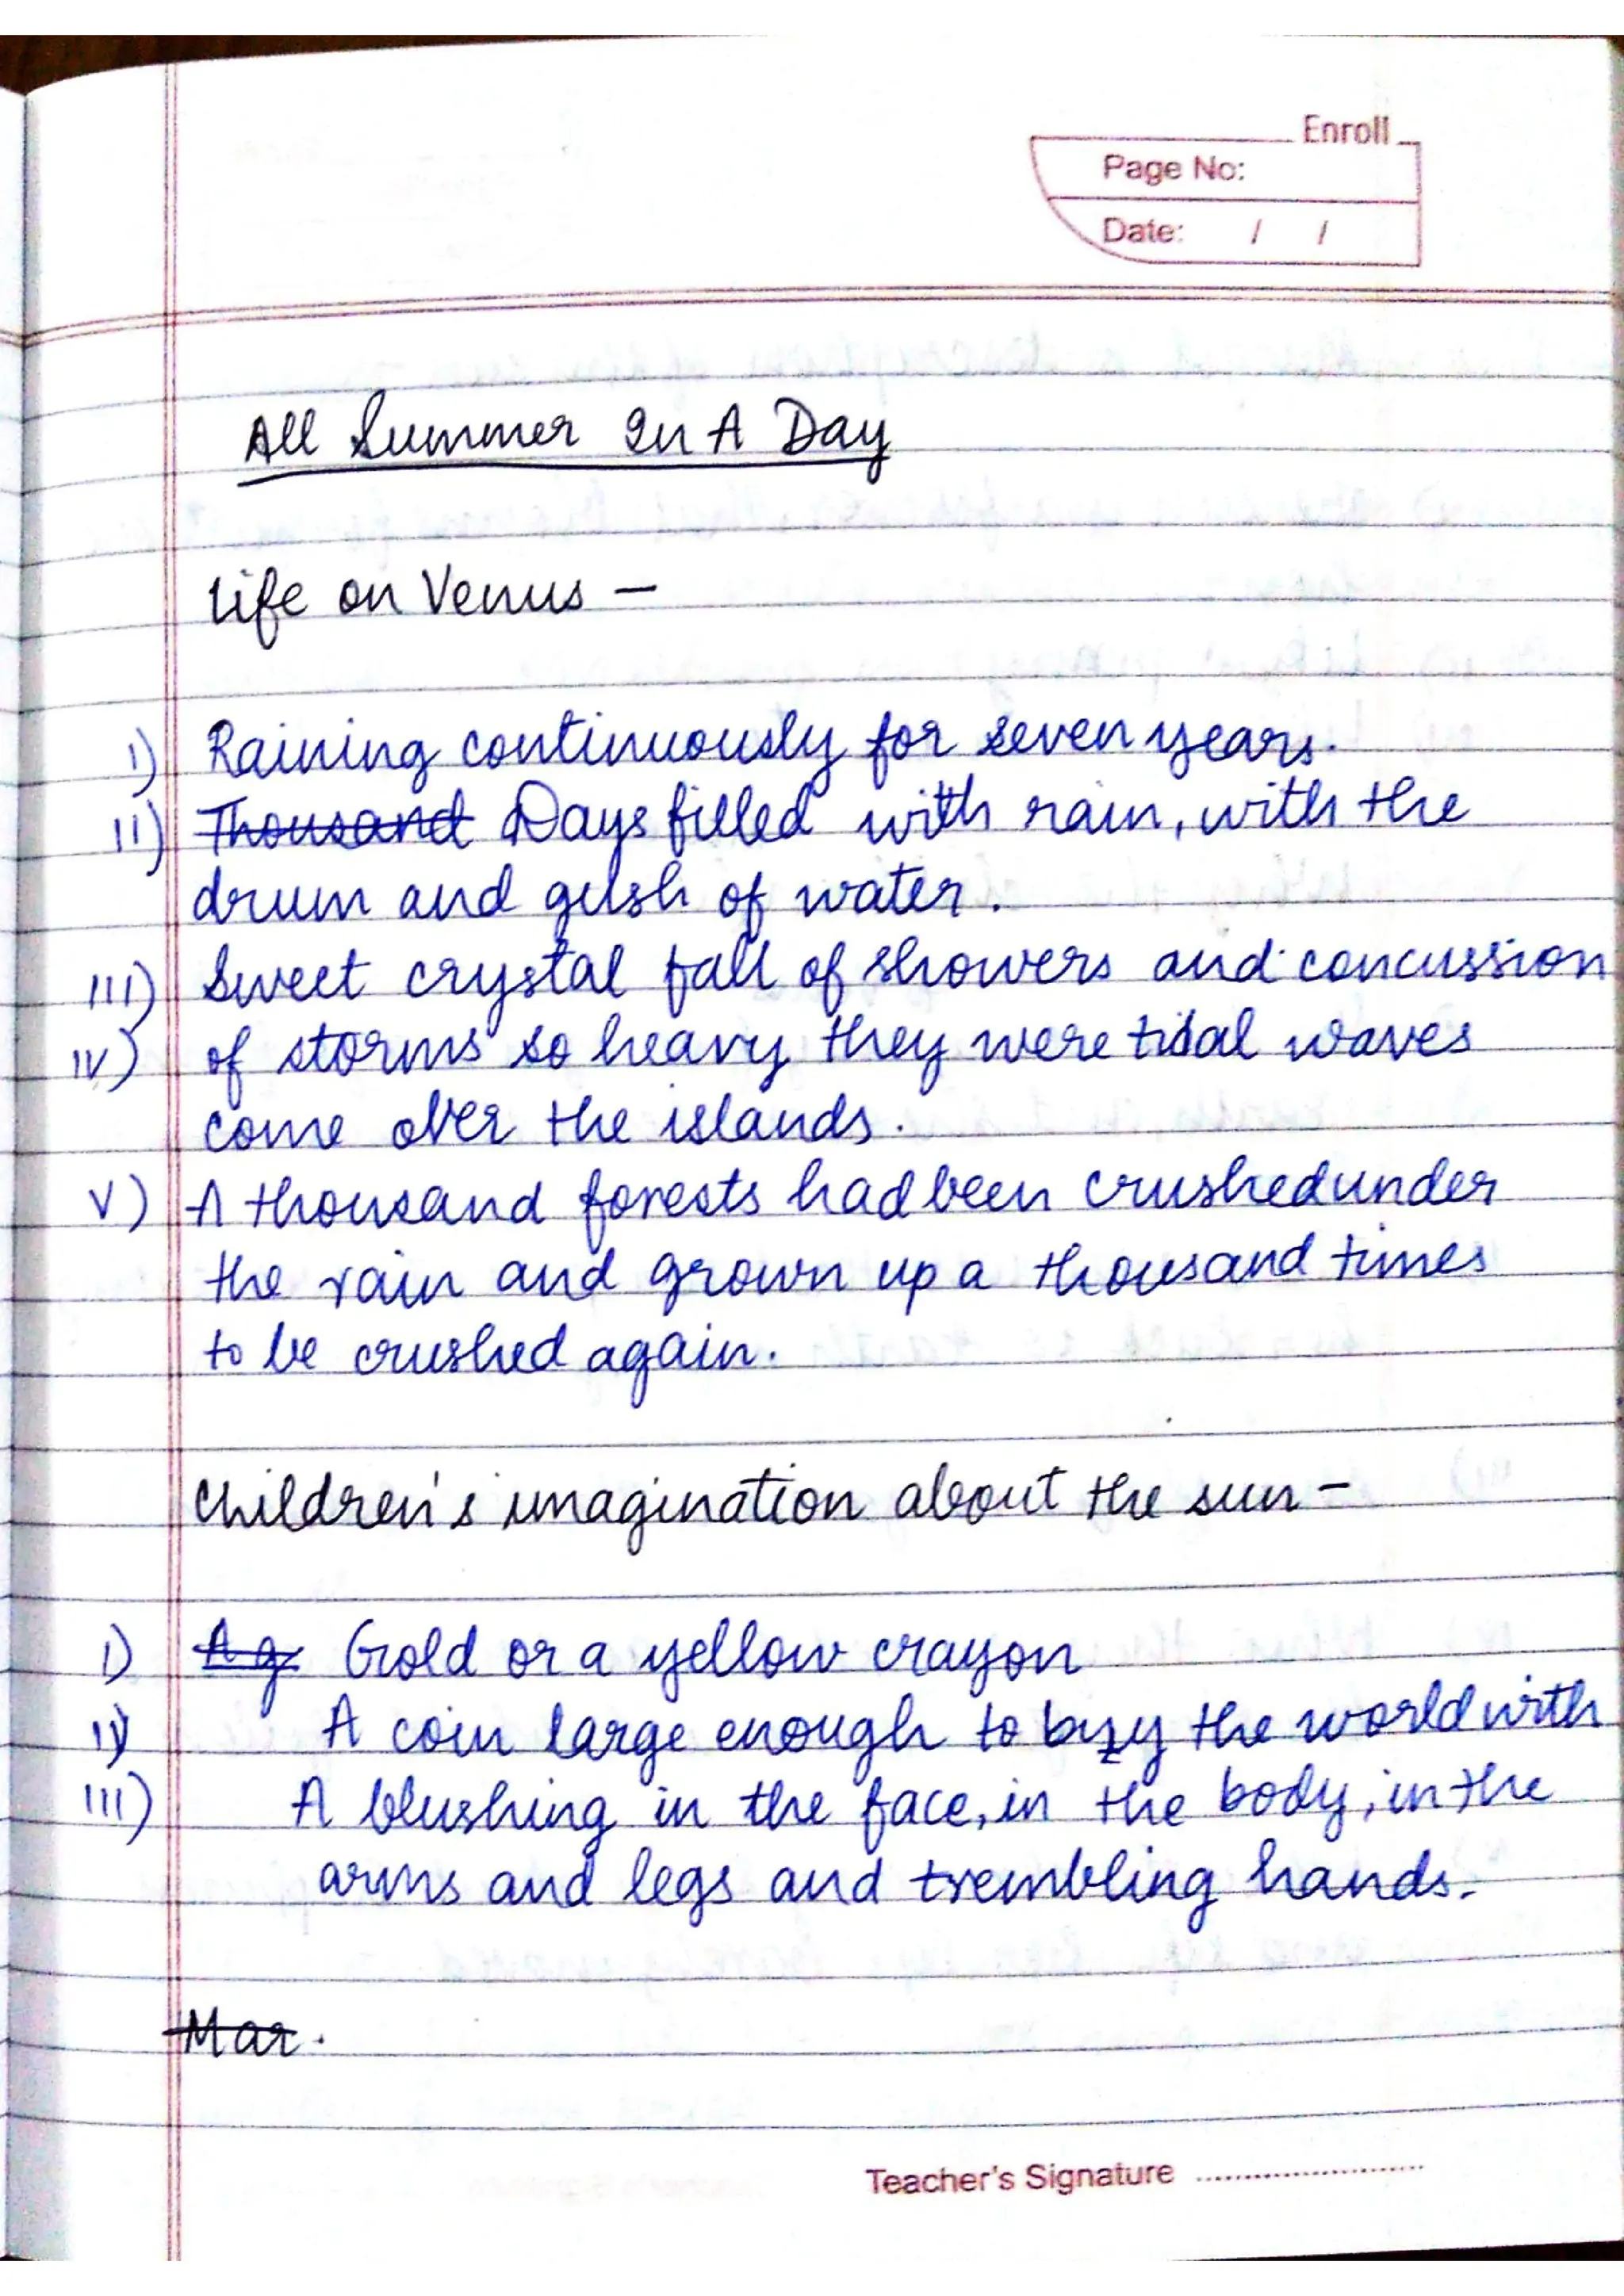 Enroll
Page No:
Date: / /
All Summer In A Day
Life on Venus —
i) Raining continuously for seven years.
ii) ~~Thousand~~ Days filled with rain, with the
drum and gush of water.
iii) Sweet crystal fall of showers and concussion
iv) of storms so heavy they were tidal waves
come over the islands.
v) A thousand forests had been crushed under
the rain and grown up a thousand times
to be crushed again.
Children's imagination about the sun —
i) ~~A g~~ Gold or a yellow crayon
ii) A coin large enough to buy the world with
iii) A blushing in the face, in the body, in the
arms and legs and trembling hands.
~~Mar~~.
Teacher's Signature ........................